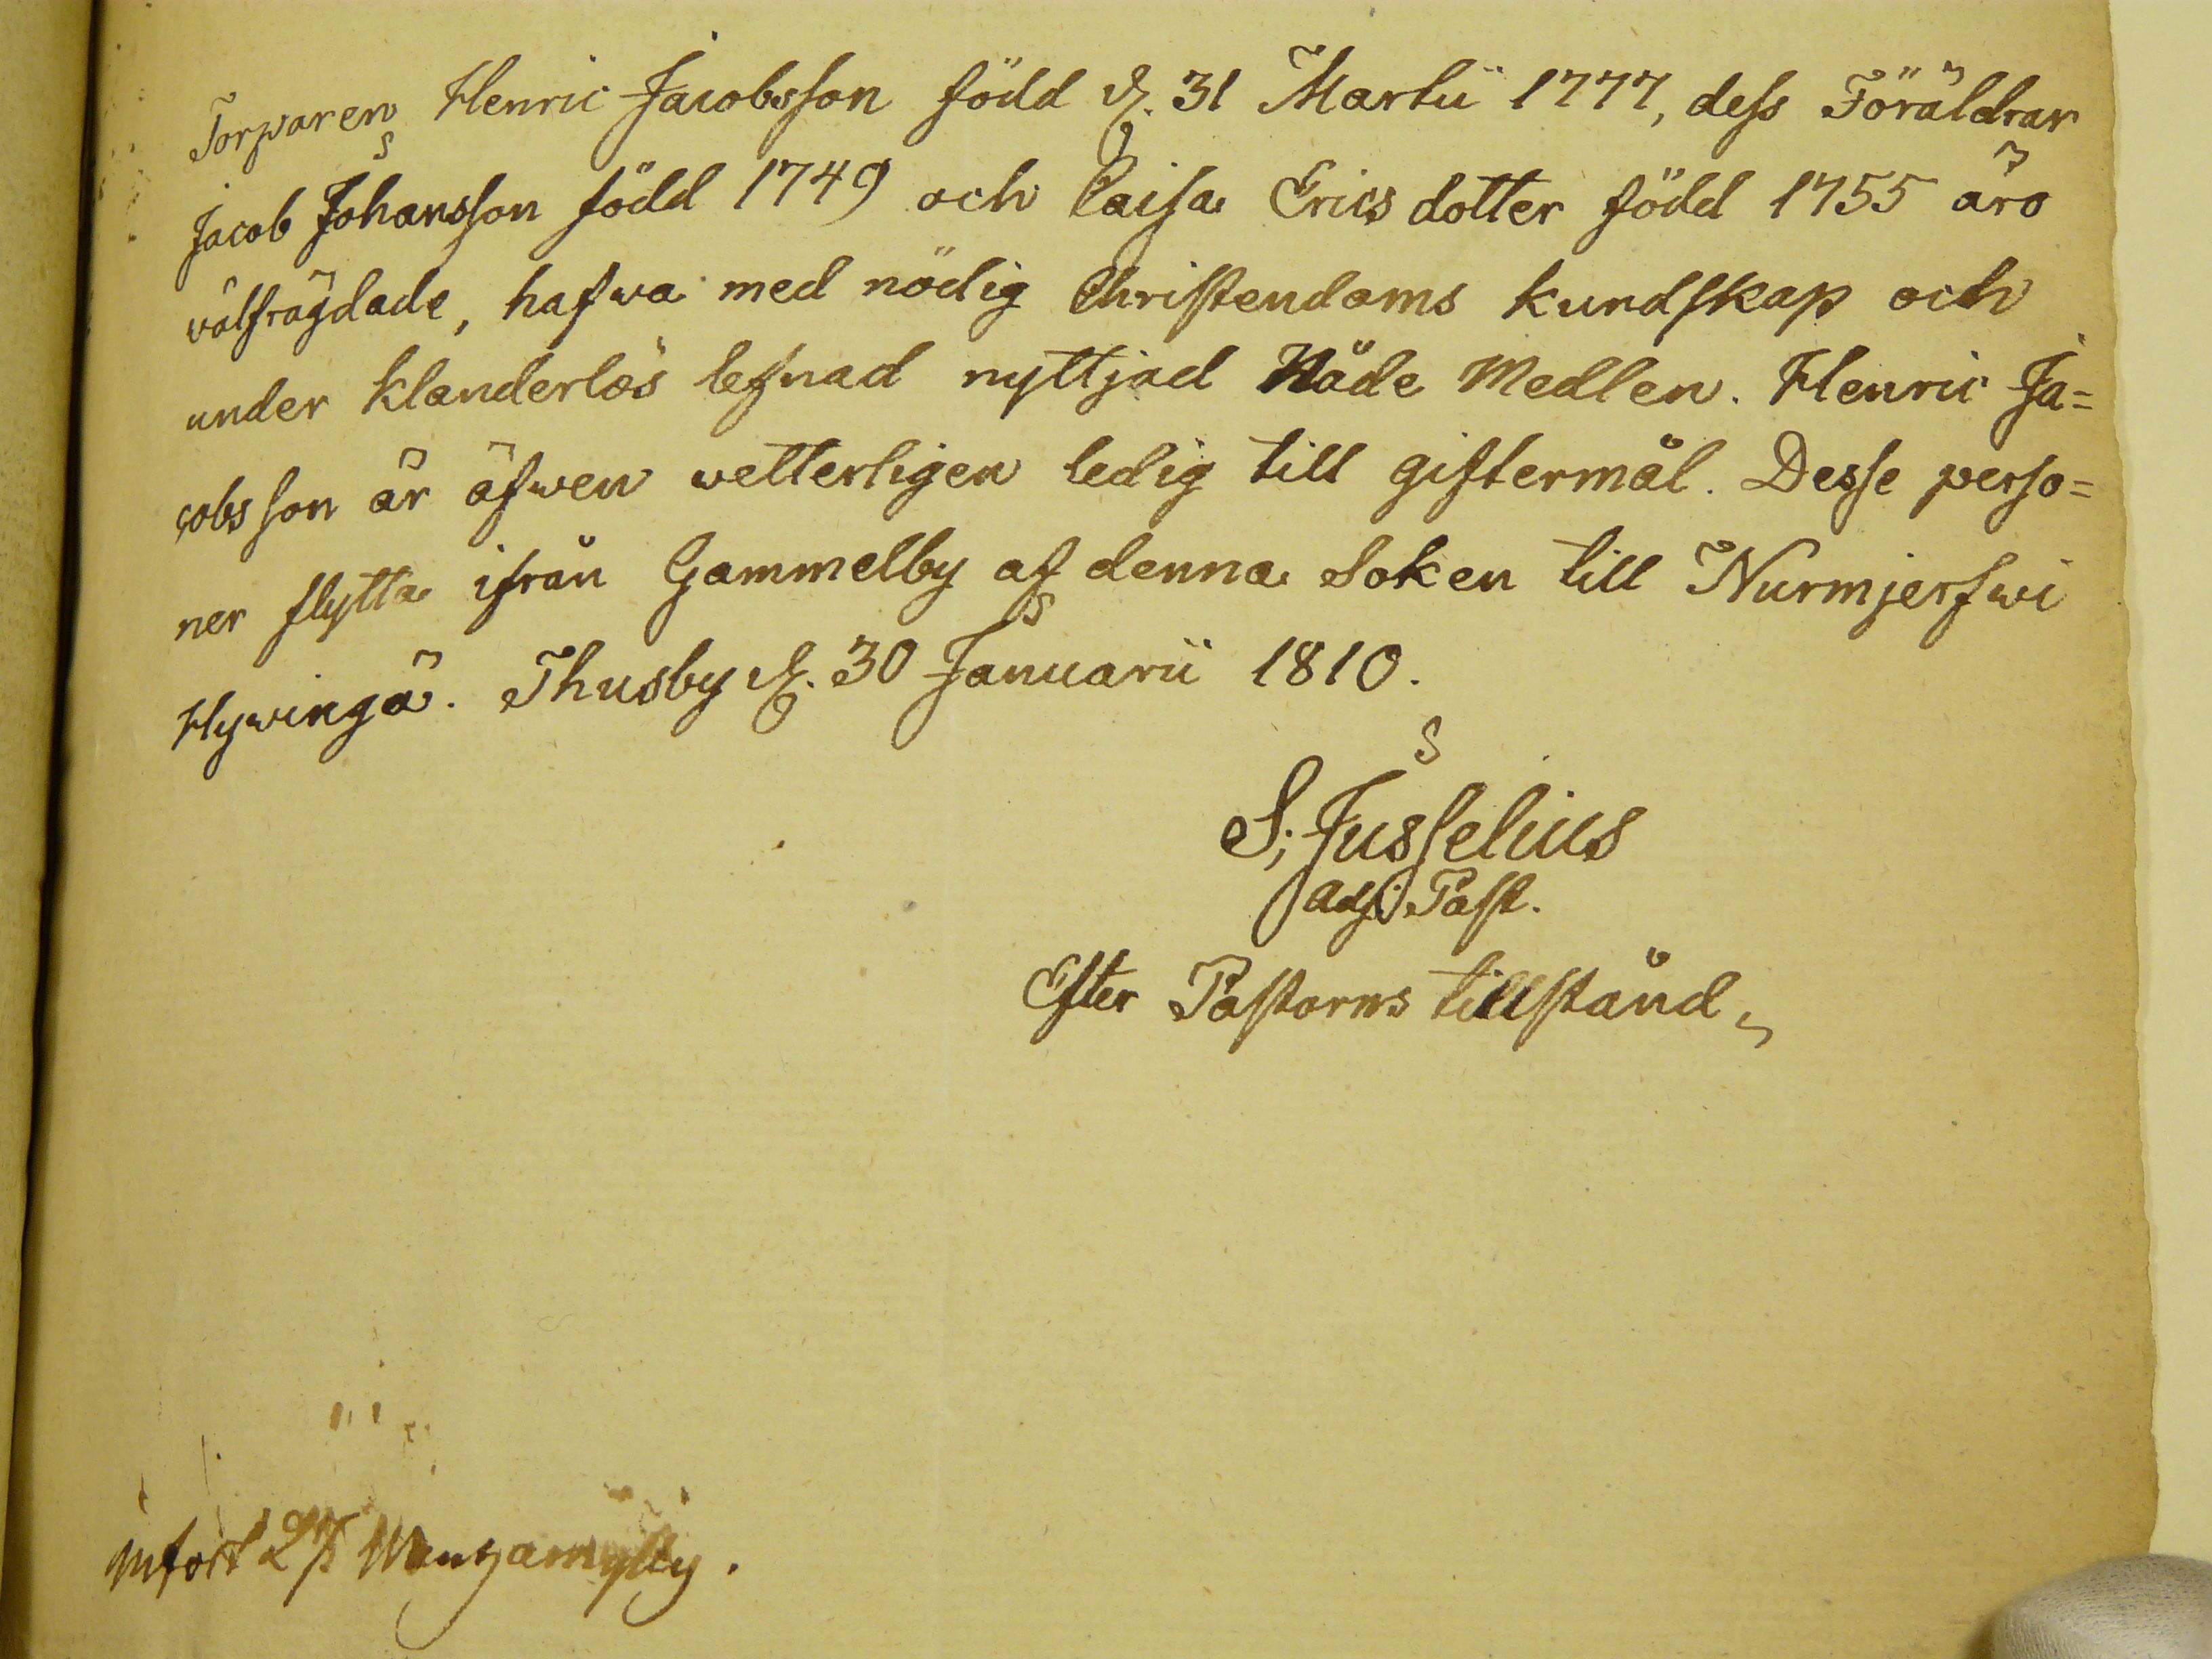 Torparen Henric Jacobsson född d. 31 Martii 1777, dess Föräldrar
Jacob Johansson född 1749 och Caisa Erics dotter född 1755 äro
wälfrägdade, hafwa med nödig Christendoms kundskap och
under klanderlös lefnad nyttjad Nåde Medlen. Henric Ja=
cobsson är äfwen wetterligen ledig till giftermål. Desse perso=
ner flytta ifrån Gammelby af denna Soken till Nurmjerfwi
Hywingä. Thusby d. 30 Januarii 1810.
S; Jusselius
adj: Past.
Efter Pastorns tillstånd,
infört